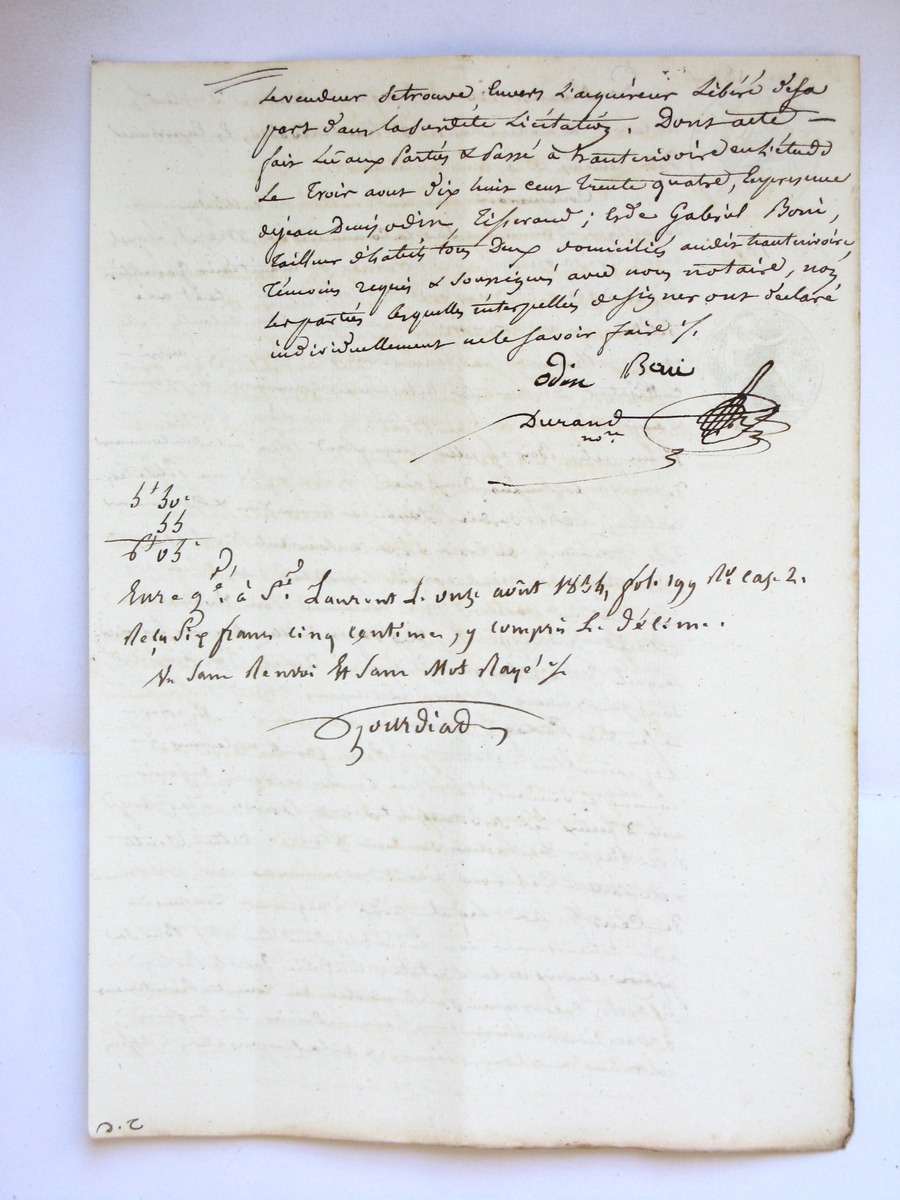 Le vendeur se trouve Envers L'acquéreur Libéré de sa
part dans la susdite Licitation. Dont acte —
fait Lu aux Parties & Passé à hauterivoire en L'étude
Le Trois aout dix huit cent trente quatre, En presence
de jean Denis odin, Tisserand; Et de Gabriel Boni,
Tailleur d'habits tous Deux domiciliés audit hauterivoire,
Témoins requis & soussignés avec nous notaire, non
Les parties lesquelles interpellés de signer ont déclaré
individuellement ne le savoir faire ./.
odin Boni
Durand
nore
5f 50c
55
6f 05c
Enregé. à St. Laurent Le onze août 1834, fol. 199 Ro. case 2.
Reçu Six francs cinq centimes, y compris Le Décime.
Sans Renvoi Et Sans Mot Rayé ./.
Gourdiat
D.C